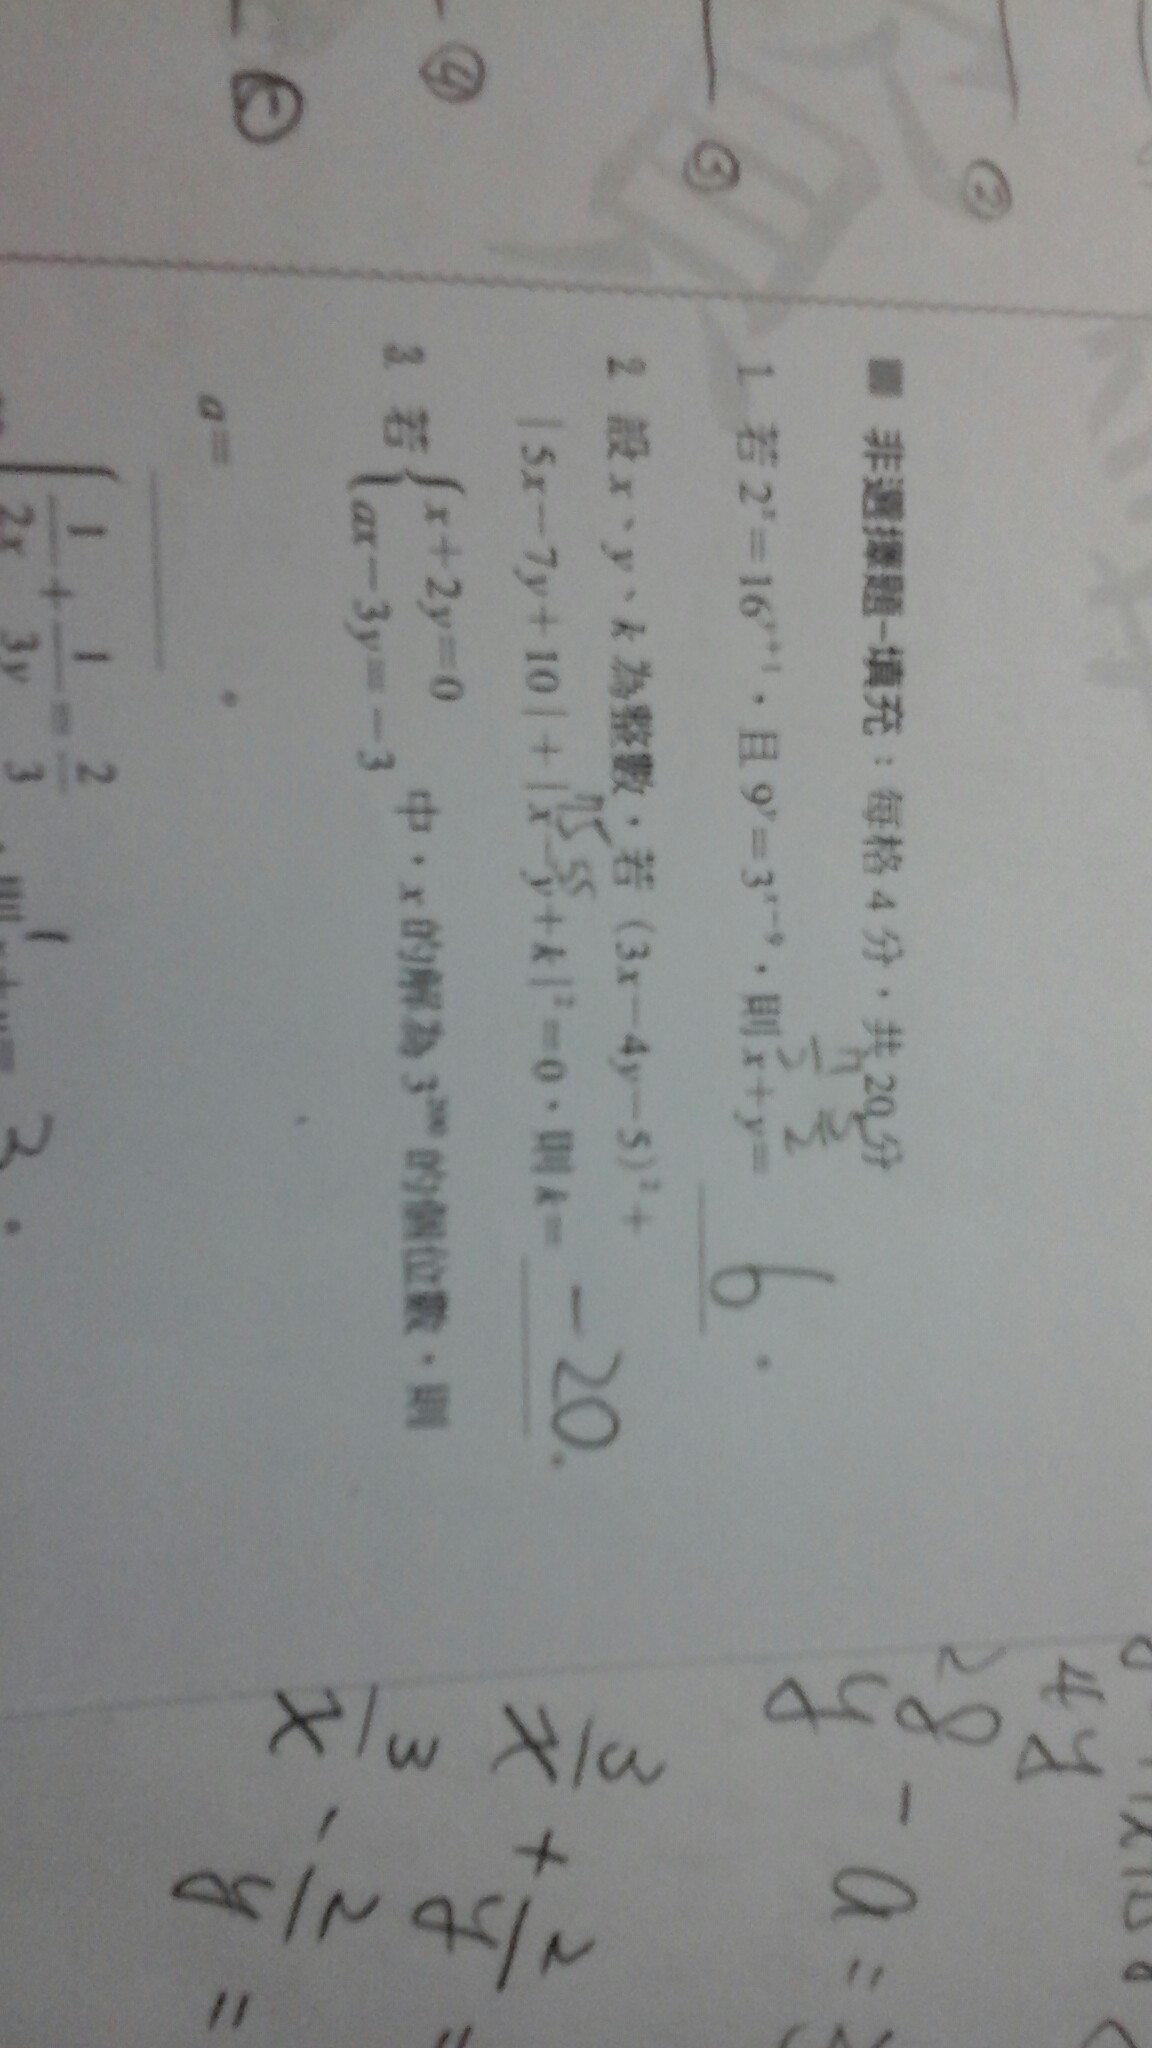 ②
③
④
⑤
■ 非選擇題-填充：每格 4 分，共 20 分
1 若 2ˣ＝16ʸ⁺¹，且 9ʸ＝3ˣ⁻⁹，則 x＋y＝ 6 。
2 設 x、y、k 為整數，若 (3x－4y－5)²＋
75 55
｜5x－7y＋10｜＋｜x－y＋k｜²＝0，則 k＝ －20 。
3 若 { x＋2y＝0
ax－3y＝－3 中，x 的解為 3²⁰⁰ 的個位數，則
a＝ 。
{ 1/2x＋1/3y＝2/3
4y
28
y - a =
3/x + 2/y =
3/x - 2/y =